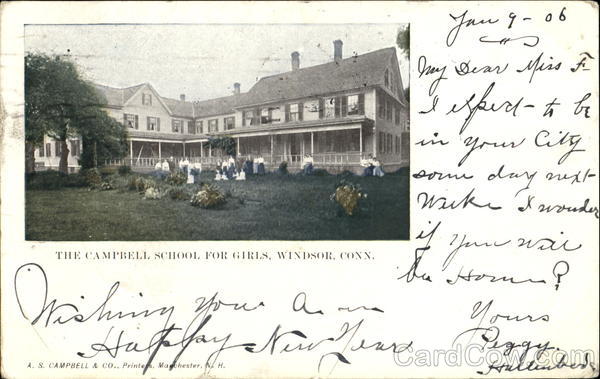 Jan 9 - 06
My Dear Miss F-
I expect - to be
in Your City
some day next -
Weeke I wonder
if You Will
be Home?
Yours
Peggy
THE CAMPBELL SCHOOL FOR GIRLS, WINDSOR, CONN.
Wishing You a
Happy New Year
A. S. CAMPBELL & CO., Printers, Manchester, N. H.
CardCow.com